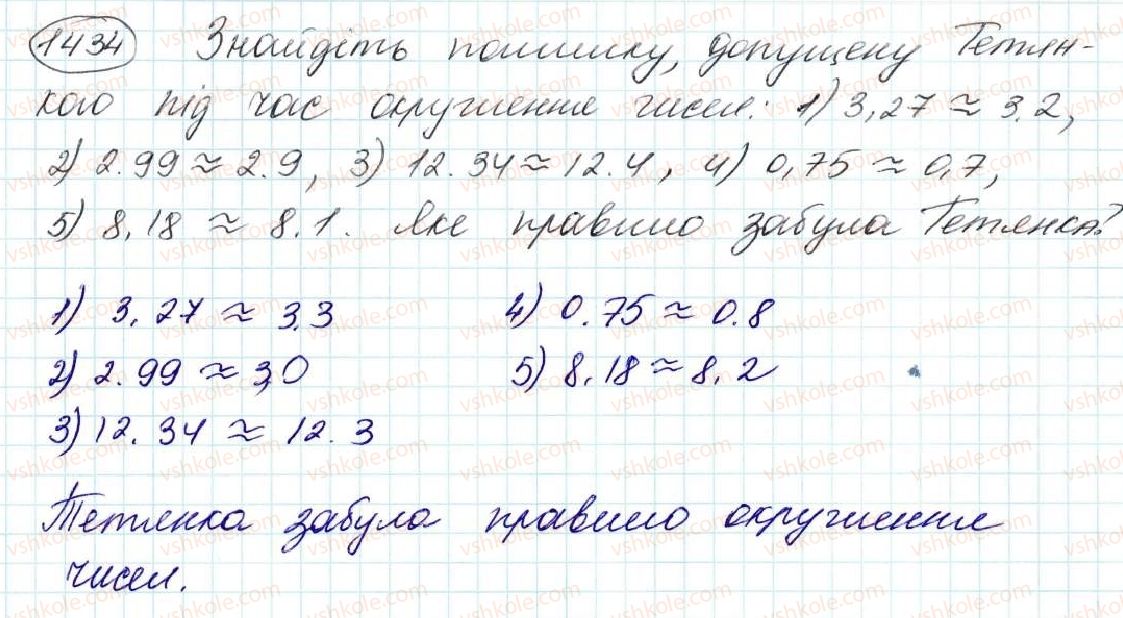 1434 Знайдіть помилку, допущену Тетян-
кою під час округлення чисел: 1) 3,27 ≈ 3.2,
2) 2.99 ≈ 2.9, 3) 12.34 ≈ 12.4, 4) 0,75 ≈ 0,7,
5) 8,18 ≈ 8.1. Яке правило забула Тетянка?
1) 3,27 ≈ 3,3 4) 0.75 ≈ 0.8
2) 2.99 ≈ 3,0 5) 8,18 ≈ 8,2
3) 12.34 ≈ 12.3
Тетянка забула правило округлення
чисел.
vshkole.com